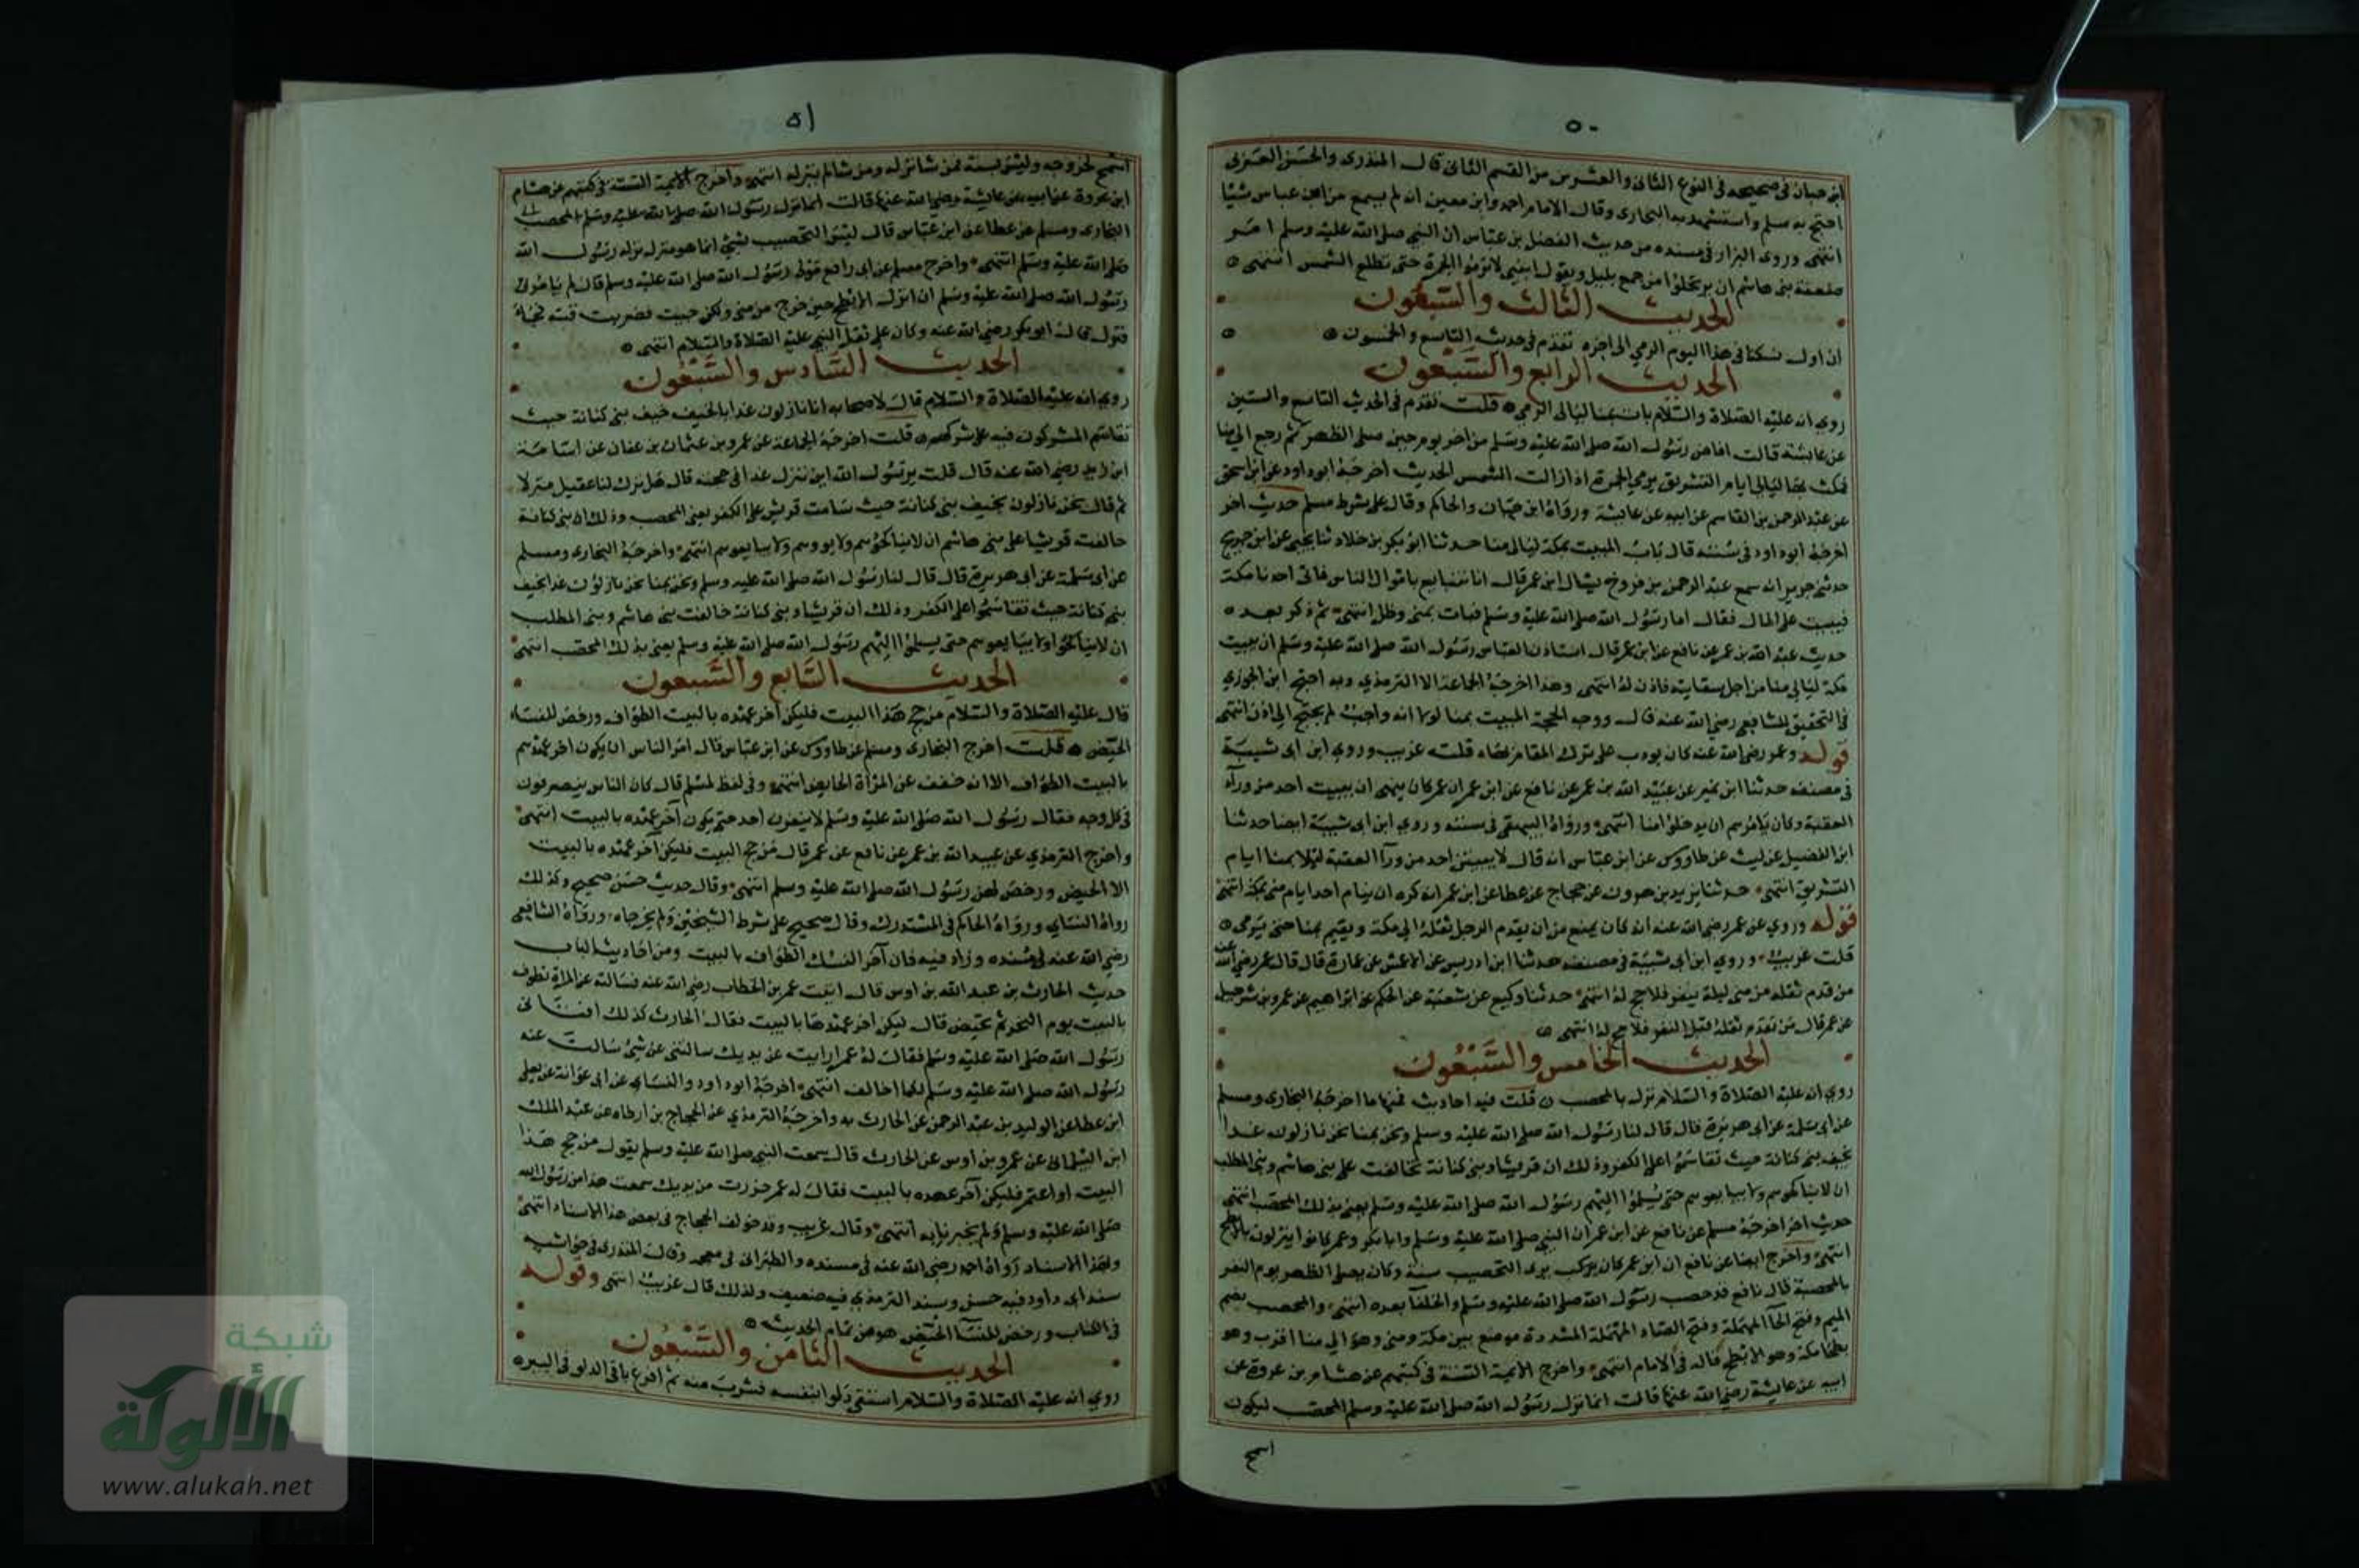 ٥٠
ابن حبان في صحيحه في النوع الثاني والعشرين من القسم الثاني قال المنذري والحسن العرني
احتج به مسلم واستشهد به البخاري وقال الامام احمد وابن معين انه لم يسمع من ابن عباس شيئا
انتهى وروى البزار في مسنده من حديث الفضل بن عباس ان النبي صلى الله عليه وسلم امر
ضعفة بني هاشم ان يرتحلوا من جمع بليل ويقول ابيني لا ترموا الجمرة حتى تطلع الشمس انتهى
الحديث الثالث والسبعون
ان اول نسكنا في هذا اليوم الرمي الى اخره تقدم في حديث التاسع والخمسون
الحديث الرابع والسبعون
روي انه عليه الصلاة والسلام بات بمنا ليالي الرمي قلت تقدم في الحديث التاسع والستين
عن عائشة قالت افاض رسول الله صلى الله عليه وسلم من اخر يوم حين صلى الظهر ثم رجع الى منا
فمكث بها ليالي ايام التشريق يرمي الجمرة اذا زالت الشمس الحديث اخرجه ابو داود عن ابن اسحق
عن عبد الرحمن بن القاسم عن ابيه عن عايشة ورواه ابن حبان والحاكم وقال على شرط مسلم حديث اخر
اخرجه ابو داود في سننه قال باب المبيت بمكة ليالي منا حدثنا ابو بكر بن خلاد ثنا يحيى عن ابن جريج
حدثني جرير انه سمع عبد الرحمن بن فروخ يسال ابن عمر قال انا نتبايع باموال الناس فياتي احدنا مكة
فيبيت على المال فقال اما رسول الله صلى الله عليه وسلم فبات بمنى وظل انتهى ثم ذكر بعد
حديث عبد الله بن عمر عن نافع عن ابن عمر قال استاذن العباس رسول الله صلى الله عليه وسلم ان يبيت
مكة ليالي منا من اجل سقايته فاذن له انتهى وهذا اخرجه الجماعة الا الترمذي وبه احتج ابن الجوزي
في التحقيق للشافعي رضي الله عنه قال ووجه الحجة المبيت بمنا لولا انه واجب لم يحتج الى اذن انتهى
قوله وعمر رضي الله عنه كان يودب على ترك المقام بها قلت غريب وروى ابن ابي شيبة
في مصنفه حدثنا ابن نمير عن عبيد الله بن عمر عن نافع عن ابن عمر ان عمر كان ينهى ان يبيت احد من وراء
العقبة وكان يامرهم ان يدخلوا منا انتهى ورواه البيهقي في سننه وروى ابن ابي شيبة ايضا حدثنا
ابن الفضيل عن ليث عن طاووس عن ابن عباس انه قال لا يبيتن احد من وراء العقبة ليلا بمنا ايام
التشريق انتهى حدثنا يزيد بن هرون عن حجاج عن عطا عن ابن عمر انه كره ان ينام احد ايام منى بمكة انتهى
قوله وروي عن عمر رضي الله عنه انه كان يمنع من ان يقدم الرجل ثقله الى مكة ويقيم بمنا حتى يرمي
قلت غريب وروى ابن ابي شيبة في مصنفه حدثنا ابن ادريس عن الاعمش عن عمارة قال قال عمر رضي الله عنه
من قدم ثقله من منى ليلة ينفر فلا حج له انتهى حدثنا وكيع عن شعبة عن الحكم عن ابراهيم عن عمرو بن شرحبيل
عن عمر قال من تقدم ثقله قبل النفر فلا حج له انتهى
الحديث الخامس والسبعون
روي انه عليه الصلاة والسلام نزل بالمحصب قلت فيه احاديث فمنها ما اخرجه البخاري ومسلم
عن ابي سلمة عن ابي هريرة قال قال لنا رسول الله صلى الله عليه وسلم ونحن بمنا نحن نازلون غدا
بخيف بني كنانة حيث تقاسموا على الكفر وذلك ان قريشا وبني كنانة تحالفت على بني هاشم وبني المطلب
ان لا يناكحوهم ولا يبايعوهم حتى يسلموا اليهم رسول الله صلى الله عليه وسلم يعني بذلك المحصب انتهى
حديث اخر اخرجه مسلم عن نافع عن ابن عمر ان النبي صلى الله عليه وسلم وابا بكر وعمر كانوا ينزلون بالابطح
انتهى واخرج ايضا عن نافع ان ابن عمر كان يرى التحصيب سنة وكان يصلي الظهر يوم النفر
بالمحصبة قال نافع قد حصب رسول الله صلى الله عليه وسلم والخلفا بعده انتهى والمحصب بضم
الميم وفتح الحا المهملة وفتح الصاد المهملة المشددة موضع بين مكة ومنى وهو الى منا اقرب وهو
بطحا مكة وهو الابطح قاله في الامام انتهى واخرج الايمة الستة في كتبهم عن هشام بن عروة عن
ابيه عن عايشة رضي الله عنها قالت انما نزل رسول الله صلى الله عليه وسلم المحصب ليكون
اسمح
٥١
اسمح لخروجه وليس بسنة فمن شا نزله ومن شا لم ينزله انتهى واخرج الايمة الستة في كتبهم عن هشام
ابن عروة عن ابيه عن عايشة رضي الله عنها قالت انما نزل رسول الله صلى الله عليه وسلم المحصب
البخاري ومسلم عن عطا عن ابن عباس قال ليس التحصيب بشي انما هو منزل نزله رسول الله
صلى الله عليه وسلم انتهى واخرج مسلم عن ابي رافع مولى رسول الله صلى الله عليه وسلم قال لم يامرني
رسول الله صلى الله عليه وسلم ان انزل الابطح حين خرج من منى ولكن جيت فضربت قبته فجاء
فنزل قال ابو بكر رضي الله عنه وكان على ثقل النبي عليه الصلاة والسلام انتهى
الحديث السادس والسبعون
روي انه عليه الصلاة والسلام قال لاصحابه انا نازلون غدا بالخيف خيف بني كنانة حيث
تقاسم المشركون فيه على شركهم قلت اخرجه الجماعة عن عمرو بن عثمان بن عفان عن اسامة
ابن زيد رضي الله عنه قال قلت يرسول الله اين ننزل غدا في حجته قال هل ترك لنا عقيل منزلا
ثم قال نحن نازلون بخيف بني كنانة حيث قاسمت قريش على الكفر يعني المحصب وذلك ان بني كنانة
حالفت قريشا على بني هاشم ان لا يناكحوهم ولا يووهم ولا يبايعوهم انتهى واخرجه البخاري ومسلم
عن ابي سلمة عن ابي هريرة قال قال لنا رسول الله صلى الله عليه وسلم ونحن بمنا نحن نازلون غدا بخيف
بني كنانة حيث تقاسموا على الكفر وذلك ان قريشا وبني كنانة حالفت بني هاشم وبني المطلب
ان لا يناكحوا ولا يبايعوهم حتى يسلموا اليهم رسول الله صلى الله عليه وسلم يعني بذلك المحصب انتهى
الحديث السابع والسبعون
قال عليه الصلاة والسلام من حج هذا البيت فليكن اخر عهده بالبيت الطواف ورخص للنساء
الحيض قلت اخرج البخاري ومسلم عن طاووس عن ابن عباس قال امر الناس ان يكون اخر عهدهم
بالبيت الطواف الا انه خفف عن المراة الحايض انتهى وفي لفظ لمسلم قال كان الناس ينصرفون
في كل وجه فقال رسول الله صلى الله عليه وسلم لا ينفرن احد حتى يكون آخر عهده بالبيت انتهى
واخرج الترمذي عن عبيد الله بن عمر عن نافع عن عمر قال من حج البيت فليكن آخر عهده بالبيت
الا الحيض ورخص لهن رسول الله صلى الله عليه وسلم انتهى وقال حديث حسن صحيح وكذلك
رواه النسائي ورواه الحاكم في المستدرك وقال صحيح على شرط الشيخين ولم يخرجاه ورواه الشافعي
رضي الله عنه في مسنده وزاد فيه فان آخر النسك الطواف بالبيت ومن احاديث الباب
حديث الحارث بن عبد الله بن اوس قال اتيت عمر بن الخطاب رضي الله عنه فسالته عن المراة تطوف
بالبيت يوم النحر ثم تحيض قال ليكن آخر عهدها بالبيت فقال الحارث كذلك افتاني
رسول الله صلى الله عليه وسلم فقال له عمر اربت عن يديك سالتني عن شيء سالت عنه
رسول الله صلى الله عليه وسلم لكيما اخالف انتهى اخرجه ابو داود والنسائي عن ابي عوانة عن يعلى
ابن عطا عن الوليد بن عبد الرحمن عن الحارث به واخرجه الترمذي عن الحجاج بن ارطاه عن عبد الملك
ابن البيلماني عن عمرو بن اوس عن الحارث قال سمعت النبي صلى الله عليه وسلم يقول من حج هذا
البيت او اعتمر فليكن آخر عهده بالبيت فقال له عمر خررت من يديك سمعت هذا من رسول الله
صلى الله عليه وسلم ولم تخبرنا به انتهى وقال غريب وقد خولف الحجاج في بعض هذا الاسناد انتهى
وبهذا الاسناد رواه احمد رضي الله عنه في مسنده والطبراني في معجمه وقال المنذري في حواشيه
سند ابي داود فيه حسن وسند الترمذي فيه ضعيف ولذلك قال غريب انتهى وقوله
في الكتاب ورخص للنساء الحيض هو من تمام الحديث
الحديث الثامن والسبعون
روي انه عليه الصلاة والسلام استقى دلوا بنفسه فشرب منه ثم افرغ باقي الدلو في البير
شبكة
الألوكة
www.alukah.net